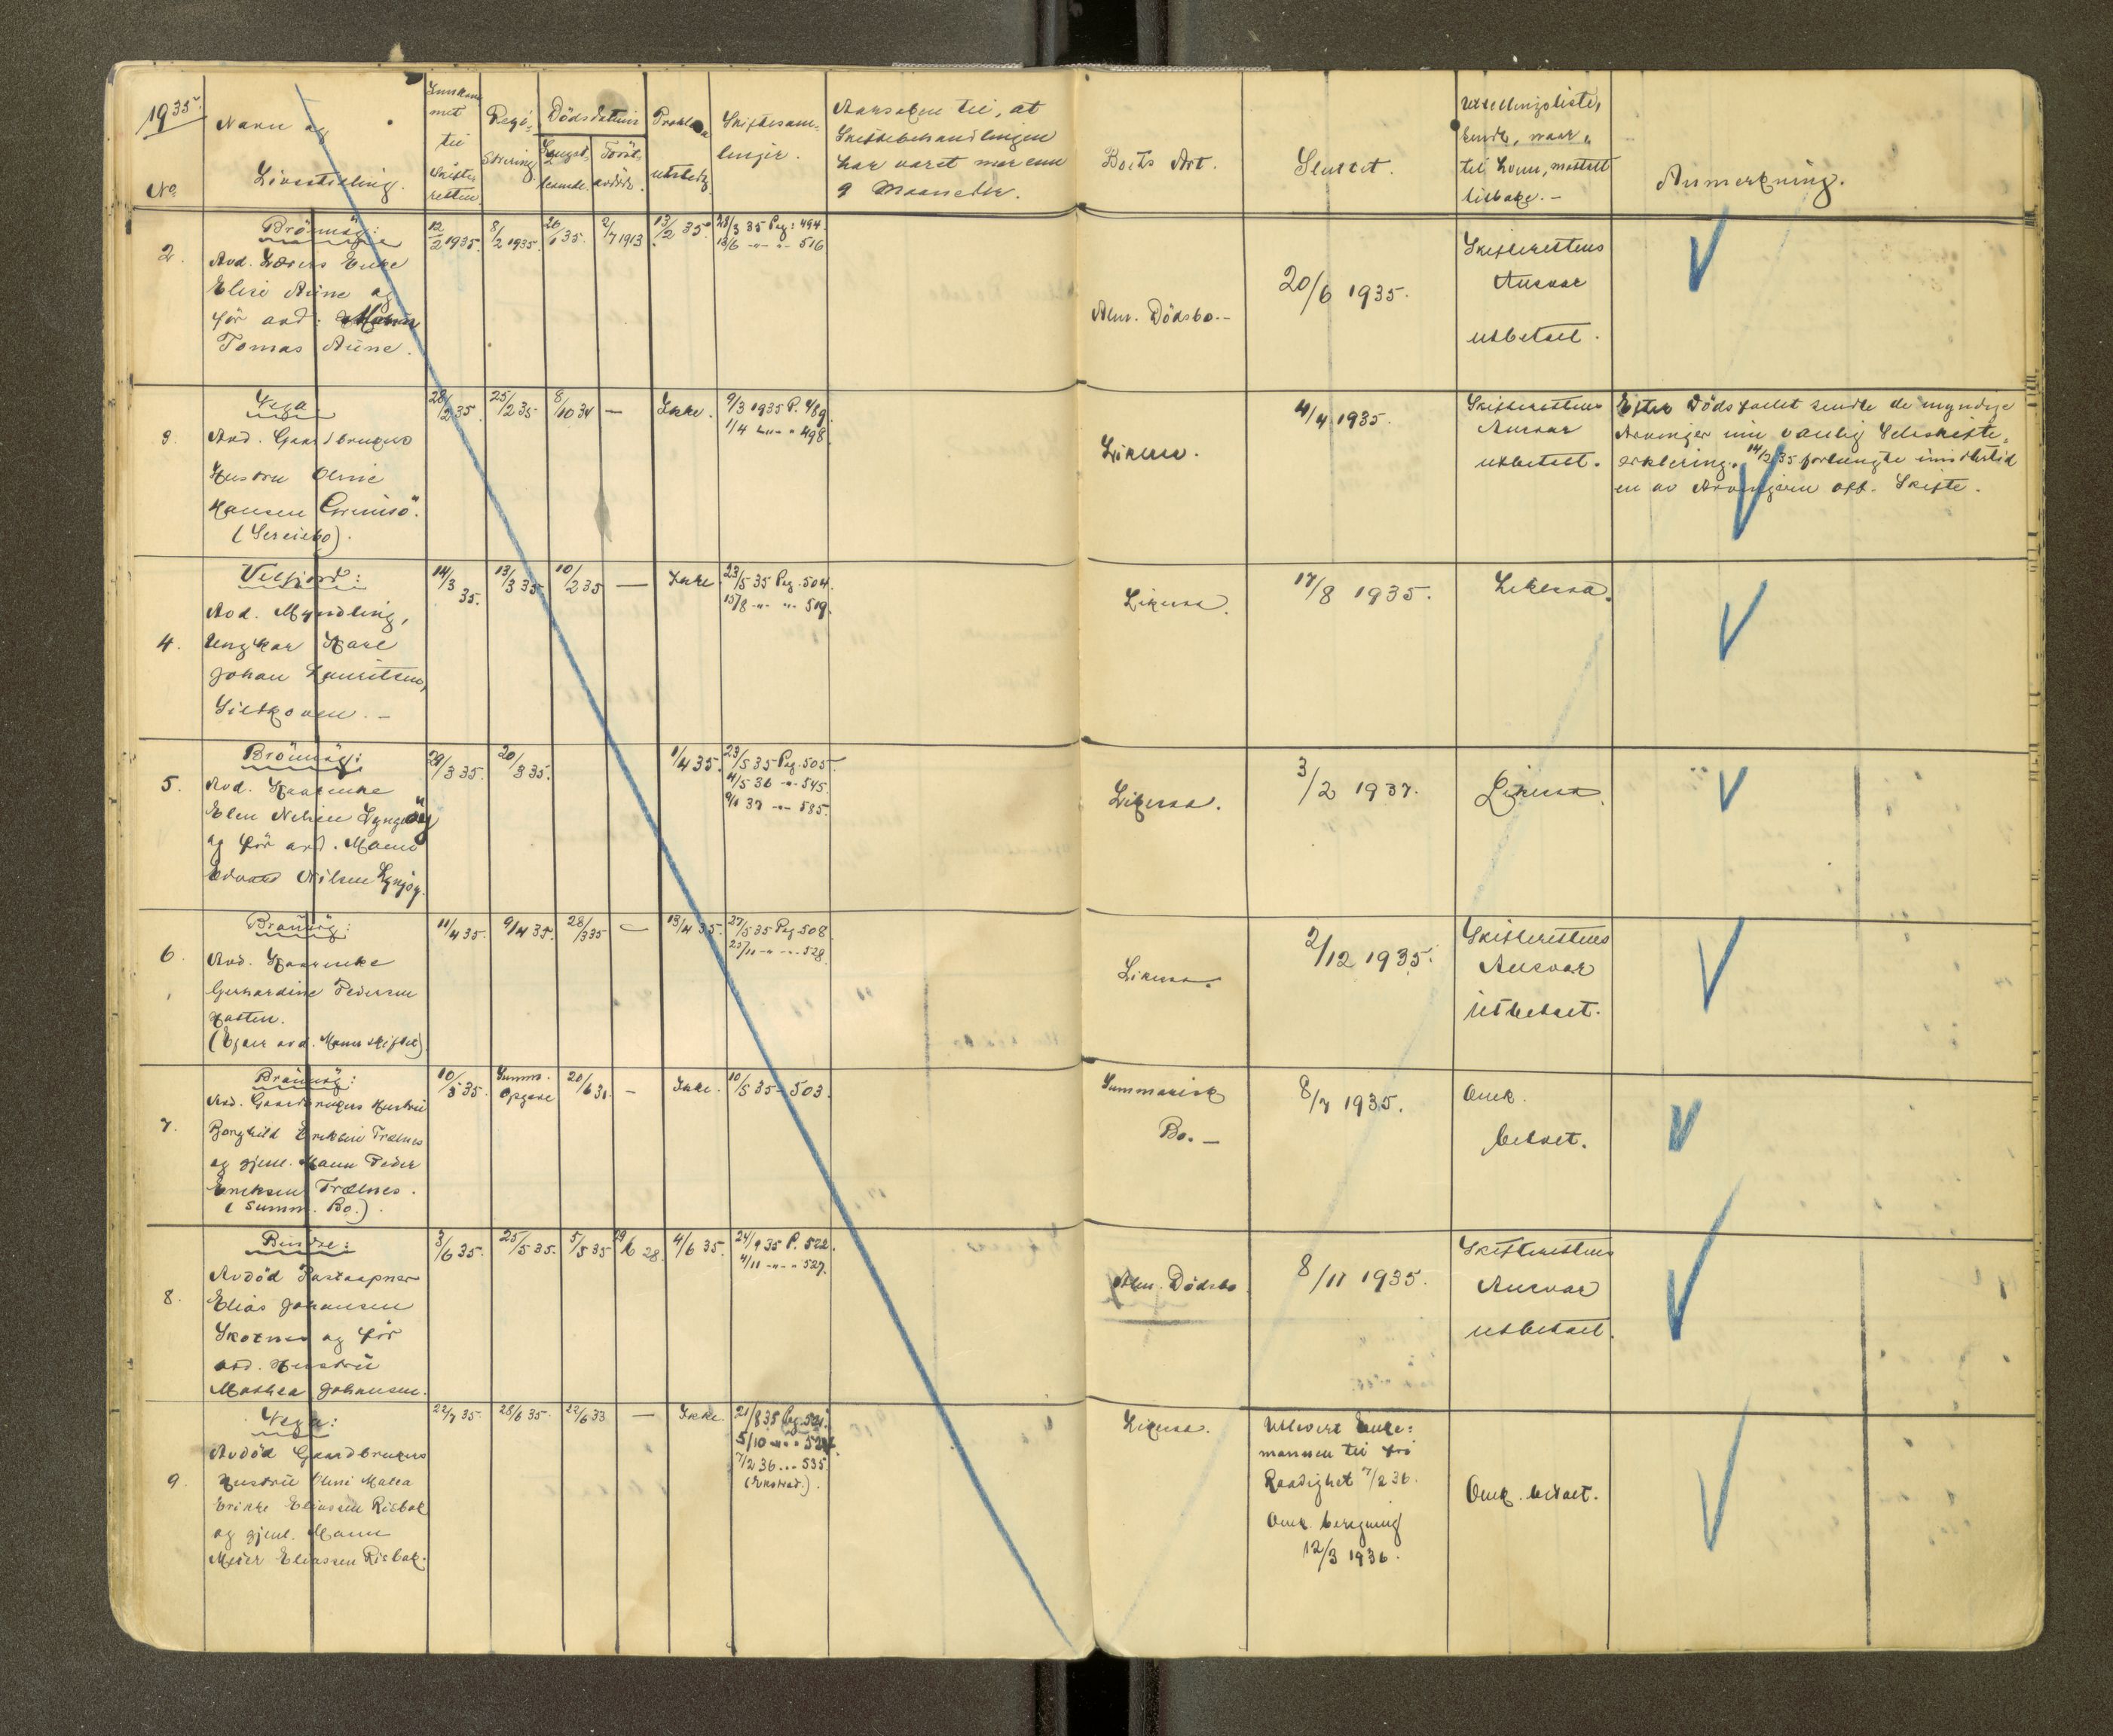 1935.
No.
Navn og
Livsstilling.
Innkom
met
til
Skifte-
retten.
Regi-
strering
Dödsdatum
Lengst-
levende.
Först-
avdöde.
Proklama
utstedt.
Skiftesam-
linger.
Aarsaken til, at
Skiftebehandlingen
har varet mer enn
9 Maaneder.
Boets Art.
Sluttet.
til
tilbake. -
Anmerkning.
2.
Brönnöy:
Avd. Enke
Elise Aune og
för avd. Mann
Tomas Aune.
12/2 1935.
8/2 1935.
26/1 35.
2/7 1913
13/2 35.
28/3 35 Pag: 494.
13/6 -"- -"- 516
Alm. Dödsbo. -
20/6 1935.
Skifterettens
Ansvar
utbetalt.
3.
Vega
Avd. Gaardbrukers
Hustru Oline
Hansen
28/2 35.
25/2 35
8/10 34
—
Ikke.
9/3 1935 P. 489
1/4 -"- " 498
Likesaa.
4/4 1935.
Skifterettens
Ansvar
utbetalt.
Efter Dödsfaldet sendte de myndige
Arvinger inn vanlig Selvskifte-
erklering. 14/2 35 forlangte imidlertid
en av Arvingene off. Skifte.
4.
Velfjord:
Avd. Myndling,
Ungkar Kare
Johan Lauritsen,
14/3 35.
13/3 35
10/2 35
—
Ikke
23/5 35 Pag. 504.
15/8 -"- -"- 519.
Likesaa.
17/8 1935.
Likesaa.
5.
Brönnöy:
Avd. Kaarenke
Elen Nilsen Lyngöy
og för avd. Mann
Edvard Nilsen Lyngöy.
29/3 35.
20/3 35.
1/4 35.
23/5 35 Pag. 505
4/5 36 -"- 545.
9/1 37 -"- 585.
Likesaa.
3/2 1937.
Likesaa.
6.
Brönnöy:
Avd. Kaarenke
Gerhardine Pedersen
(Efter avd. Mann skiftet)
11/4 35.
9/4 35.
28/3 35
—
13/4 35.
27/5 35 Pag 508
25/11 -"- -"- 528
Likesaa.
2/12 1935.
Skifterettens
Ansvar
utbetalt.
7.
Brönnöy:
Avd. Gaardbrukers Hustru
Borghild Eriksen Trælnes
og gjenl. Mann Peder
Eriksen Trælnes.
(Summ. Bo.)
10/5 35.
Summ.
Opgave
20/6 31
—
Ikke.
10/5 35 - 503.
Summarisk
Bo. -
8/7 1935.
Omk.
betalt.
8.
Bindal:
Avdöd Postaapner
Elias Johansen
Skotnes og för
avd. Hustru
Mathea Johansen.
3/6 35.
25/5 35.
5/5 35
29/6 28.
4/6 35.
24/9 35 P. 522.
4/11 -"- " 527.
Alm. Dödsbo
8/11 1935.
Skifterettens
Ansvar
utbetalt.
9.
Vega:
Avdöd Gaardbrukers
Hustru Oline Malea
Erikke Eliassen Risbak
og gjenl. Mann
Meier Eliassen Risbak.
22/7 35.
28/6 35.
22/6 33
—
Ikke.
21/8 35 Pag. 521.
5/10 -"- "
7/2 36 ... 535.
(Ekstrad.).
Likesaa.
Utlevert Enke-
mannen til fri
Raadighet 7/2 36.
Omk. beregning
12/3 1936.
Omk. betalt.